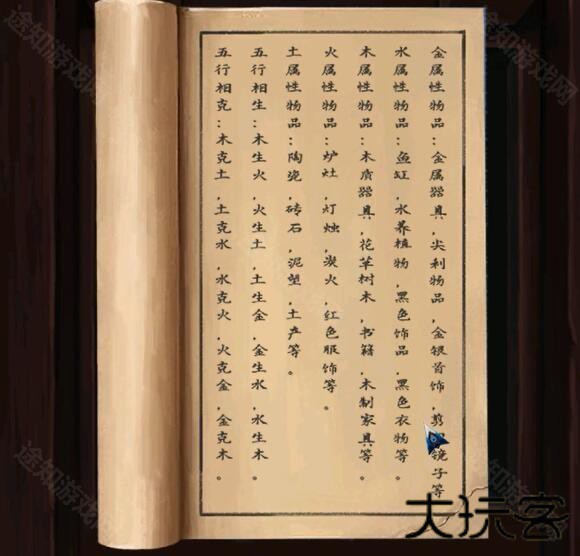 金属性物品：金属器具，尖利物品，金银首饰，剪 镜子等
水属性物品：鱼缸，水养植物，黑色饰品，黑色衣物等。
木属性物品：木质器具，花草树木，书籍，木制家具等。
火属性物品：炉灶，灯烛，炭火，红色服饰等。
土属性物品：陶瓷，砖石，泥塑，土产等。
五行相生：木生火，火生土，土生金，金生水，水生木。
五行相克：木克土，土克水，水克火，火克金，金克木。
大玩客
途知游戏网
途知游戏网
途知游戏网
途知游戏网